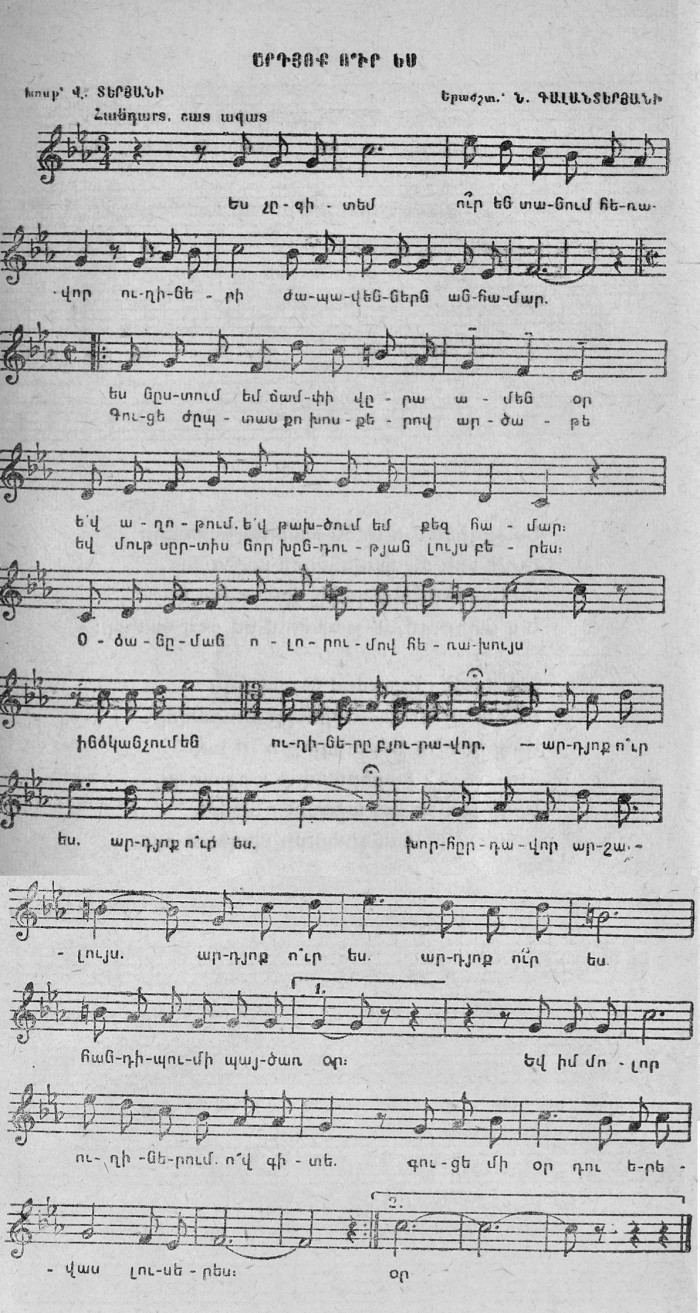 ԱՐԴՅՈՔ Ո՞ՒՐ ԵՍ
Խոսք՝ Վ. ՏԵՐՅԱՆԻ
Երաժշտ.՝ Ն. ԳԱԼԱՆՏԵՐՅԱՆԻ
Հանդարտ, շատ ազատ
Ես չը-գի-տեմ ո՞ւր են տա-նում հե-ռա-
-վոր ու-ղի-նե-րի ժա-պա-վեն-ներն ան-հա-մար.
ես նըս-տում եմ ճամ-փի վը-րա ա-մեն օր
Գու-ցե ժըպ-տաս քո խոս-քե-րով ար-ծա-թե
և՛վ ա-ղո-թում. և՛վ թախ-ծում եմ քեզ հա-մար։
եվ մութ սըր-տիս նոր խըն-դու-թյան լույս բե-րես։
Օ-ձա-նը-ման ո-լո-րու-մով հե-ռա-խույս
ինձ կանչում են ու-ղի-նե-րը բյու-րա-վոր. — ար-դյոք ո՞ւր
ես. ար-դյոք ո՞ւր ես. խոր-հըր-դա-վոր ար-շա-
-լույս. ար-դյոք ո՞ւր ես. ար-դյոք ո՞ւր ես.
1.
հան-դի-պու-մի պայ-ծառ օր։ Եվ իմ մո-լոր
ու-ղի-նե-րում. ո՞վ գի-տե. գու-ցե մի օր դու ե-րե-
2.
-վաս լու-սե-րես։ օր